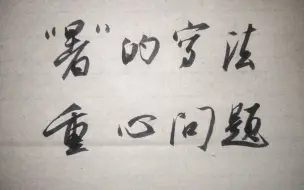 “暑”的写法
重心问题